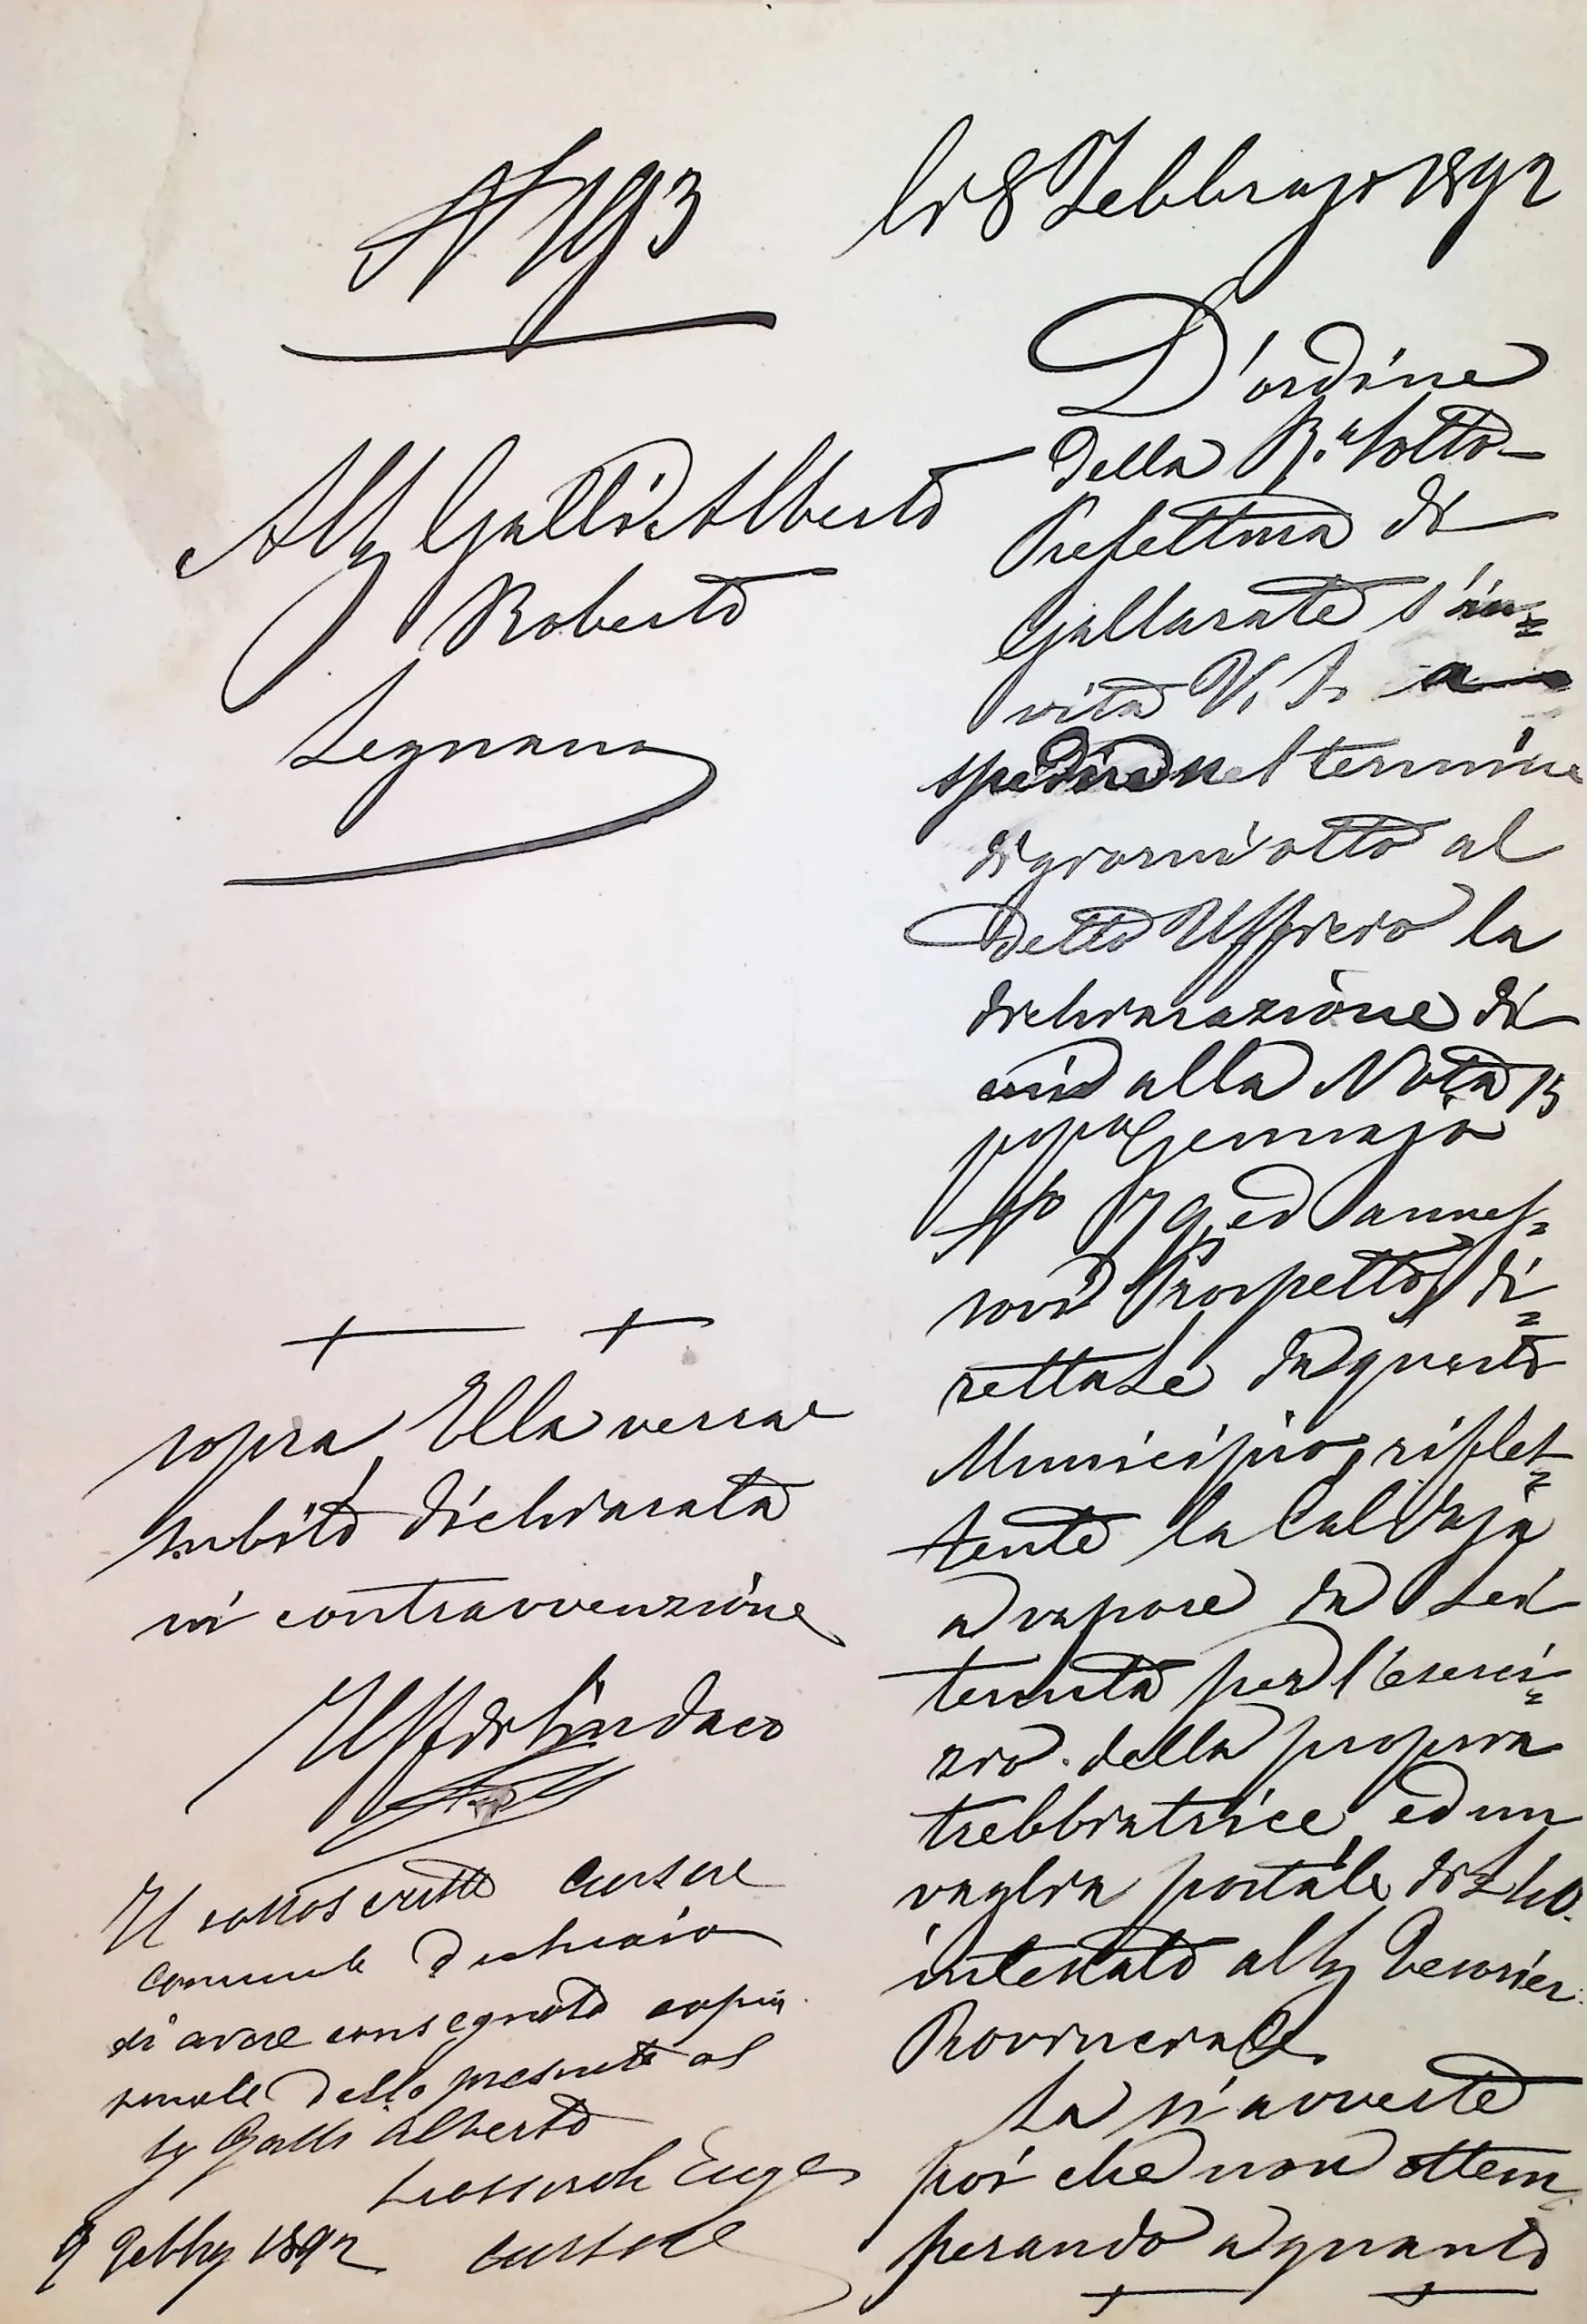 N 193
Al Sig Galli Alberto
Roberto
Legnano
li 8 Febbrajo 1892
D'ordine
della R.a Sotto
Prefettura di
Gallarate s'in=
vita V. S. a
spedire nel termine
di giorni otto al
detto Ufficio la
dichiarazione di
cui alla Nota 15
pp.o Gennajo
No 179, ed annes=
sovi Prospetto, di=
rettale da questo
Municipio, riflet=
tente la Caldaja
a vapore da Lei
tenuta per l'eserci=
zio della propria
trebbiatrice, ed un
vaglia postale di L 40.
intestato al Sig Tesorier
Provinciale.
La si avverte
poi che non ottem
perando a quanto
sopra, Ella verrà
subito dichiarata
in contravvenzione
Il ff di Sindaco
Il sottoscritto cursore
comunale dichiara
di avere consegnato copia
simile della presente al
Sig Galli Alberto
Euge
9 Febb 1892 cursore